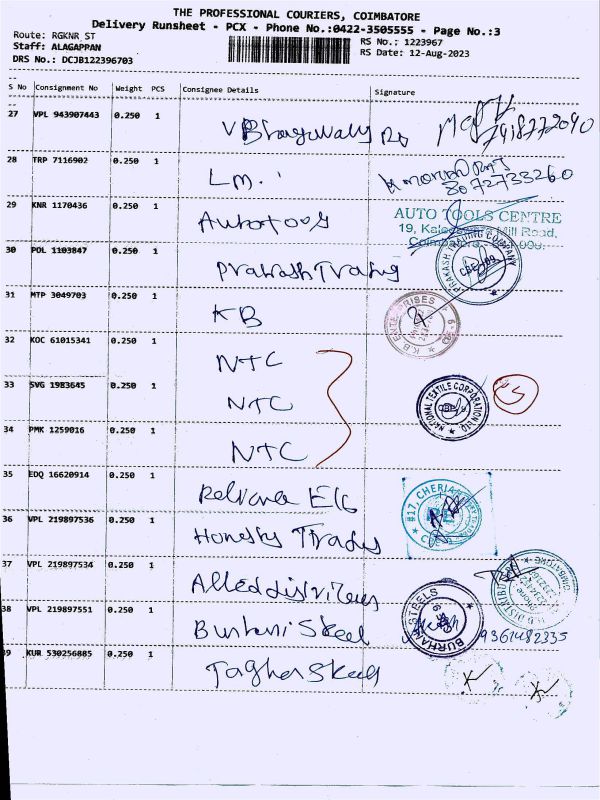 THE PROFESSIONAL COURIERS, COIMBATORE
Delivery Runsheet - PCX - Phone No.:0422-3505555 - Page No.:3
Route: RGKNR ST
Staff: ALAGAPPAN
DRS No.: DCJB122396703
RS No.: 1223967
RS Date: 12-Aug-2023
S No Consignment No Weight PCS Consignee Details Signature
27 VPL 943907443 0.250 1
28 TRP 7116902 0.250 1 LM. 8072733260
29 KNR 1170436 0.250 1 Autotools
AUTO TOOLS CENTRE
Mill Road,
30 POL 1103847 0.250 1 Prakash Trading
PRAKASH TRADING COMPANY
31 MTP 3049703 0.250 1 KB
K.B. ENTERPRISES
32 KOC 61015341 0.250 1 NTC
33 SVG 1983645 0.250 1 NTC
NATIONAL TEXTILE CORPORATION LTD.
34 PMK 1259016 0.250 1 NTC
35 EDQ 16620914 0.250 1
#17, CHERIA
36 VPL 219897536 0.250 1 Honesty Trades
37 VPL 219897534 0.250 1
38 VPL 219897551 0.250 1 Burhani Steel
BURHANI STEELS
9361482335
39 KUR 530256885 0.250 1